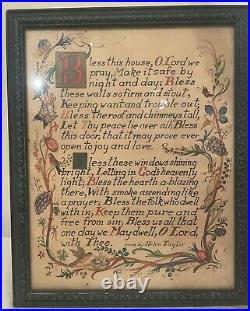 Bless this house, O Lord we
pray, Make it safe by
night and day; Bless
these walls so firm and stout,
Keeping want and trouble out;
Bless the roof and chimneys tall,
Let Thy peace lie over all; Bless
this door, that it may prove ever
open to joy and love.
Bless these windows shining
bright, Letting in God's heavenly
light; Bless the hearth a blazing
there, With smoke ascending like
a prayer; Bless the folk who dwell
within, Keep them pure and
free from sin; Bless us all that
one day we May dwell, O Lord,
with Thee.
words by Helen Taylor